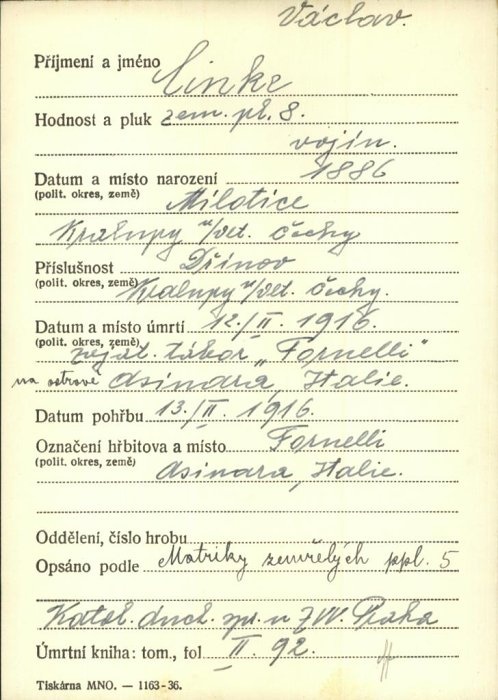 Václav.
Příjmení a jméno Cinkr
Hodnost a pluk zem. pl. 8.
vojín.
Datum a místo narození 1886
(polit. okres, země) Milotice
Kralupy n/Vlt. Čechy
Příslušnost Dřínov
(polit. okres, země) Kralupy n/Vlt. Čechy.
Datum a místo úmrtí 12./II. 1916.
(polit. okres, země) zajat. tábor „Fornelli"
na ostrově Asinara, Italie.
Datum pohřbu 13./II. 1916.
Označení hřbitova a místo Fornelli
(polit. okres, země) Asinara, Italie.
Oddělení, číslo hrobu
Opsáno podle Matriky zemřelých ppl. 5
Katol. duch. spr. u ZVV. Praha
Úmrtní kniha: tom., fol II. 92.
Tiskárna MNO. — 1163-36.